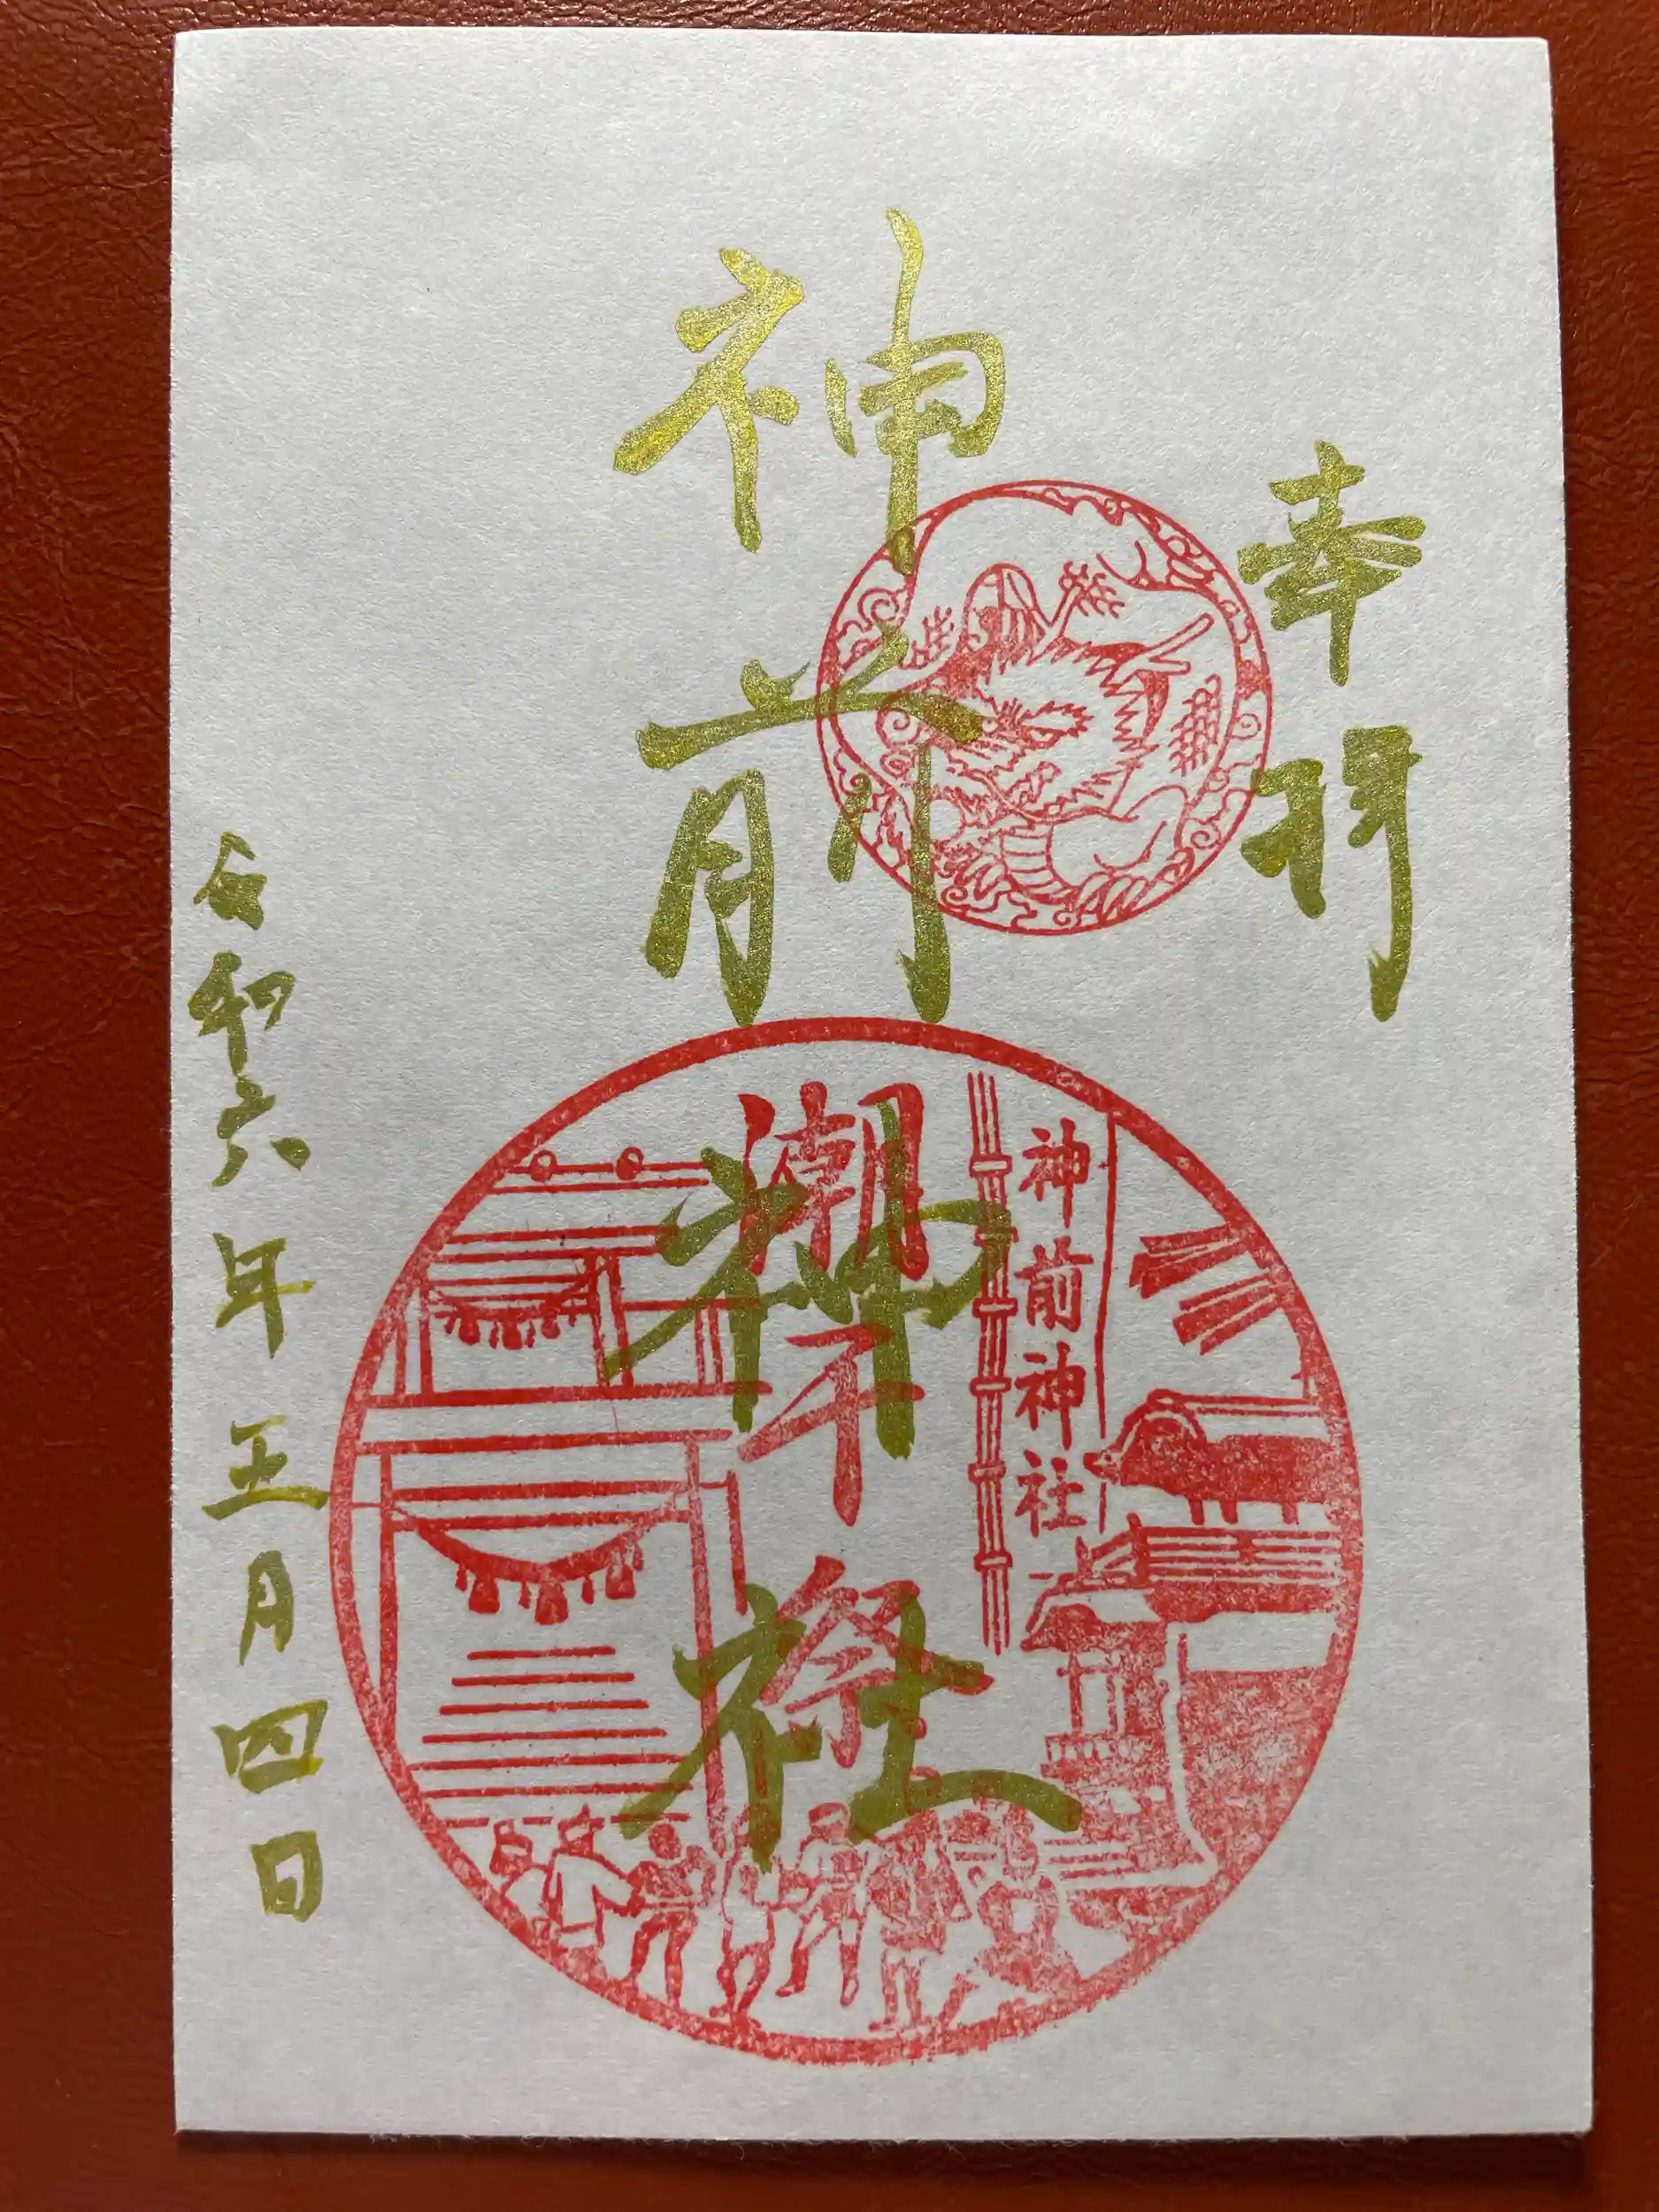 奉拝
神前神社
神前神社
潮干祭
令和六年五月四日